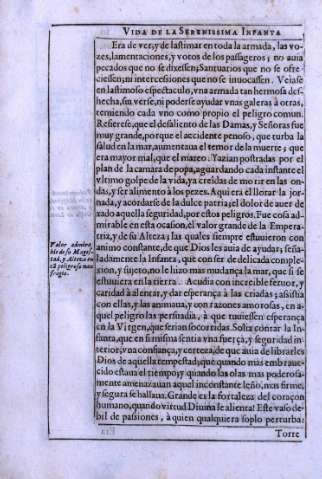 VIDA DE LA SERENISSIMA INFANTA
Era de ver, y de lastimar en toda la armada, las vo-
zes, lamentaciones, y votos de los passageros; no auia
pecados que no se dixessen; Santuarios que no se ofre-
ciessen; ni intercessiones que no se inuocassen. Veiase
en lastimoso espectaculo, vna armada tan hermosa des-
hecha, sin verse, ni poderse ayudar vnas galeras à otras,
temiendo cada vno como propio el peligro comun.
Refierese, que el desaliento de las Damas, y Señoras fue
muy grande, porque el accidente penoso, que turba la
salud en la mar, aumentaua el temor de la muerte, que
era mayor mal, que el mareo. Yazian postradas por el
plan de la camara de popa, aguardando cada instante el
vltimo golpe de la vida, ya creidas de morir en las on-
das, y ser alimento à los pezes. Aqui era el llorar la jor-
nada, y acordarse de la dulce patria; el dolor de auer de
xado aquella seguridad, por estos peligros. Fue cosa ad-
mirable en esta ocasion, el grande valor de la Empera-
triz, y de su Alteza; las quales siempre estuuieron con
animo constante, de que Dios les auia de ayudar; seña-
ladamente la Infanta, que con ser de delicada comple-
xion, y sujeto, no le hizo mas mudança la mar, que si se
estuuiera en la tierra. Acudia con increible feruor, y
caridad à alentar, y dar esperança à las criadas; assistia
con ellas, y las animaua, y con razones amorosas, en a-
quel peligro las persuadia, à que tuuiessen esperança
en la Virgen, que serian socorridas. Solia contar la In-
fanta, que en si misma sentia vna fuerça, y seguridad in-
terior, vna confiança, y certeza, de que auia de librarles
Dios de aquella tempestad; que quando mas embraue-
cido estaua el tiempo, y quando las olas mas poderosa-
mente amenazauan aquel inconstante leño, mas firme,
y segura se hallaua. Grande es la fortaleza del coraçon
humano, quando virtud Diuina le alienta! Este vaso de-
bil de passiones, à quien qualquiera soplo perturba:
Torre
Valor admira-
ble de su Mages-
tad, y Alteza en
este peligroso nau
fragio.